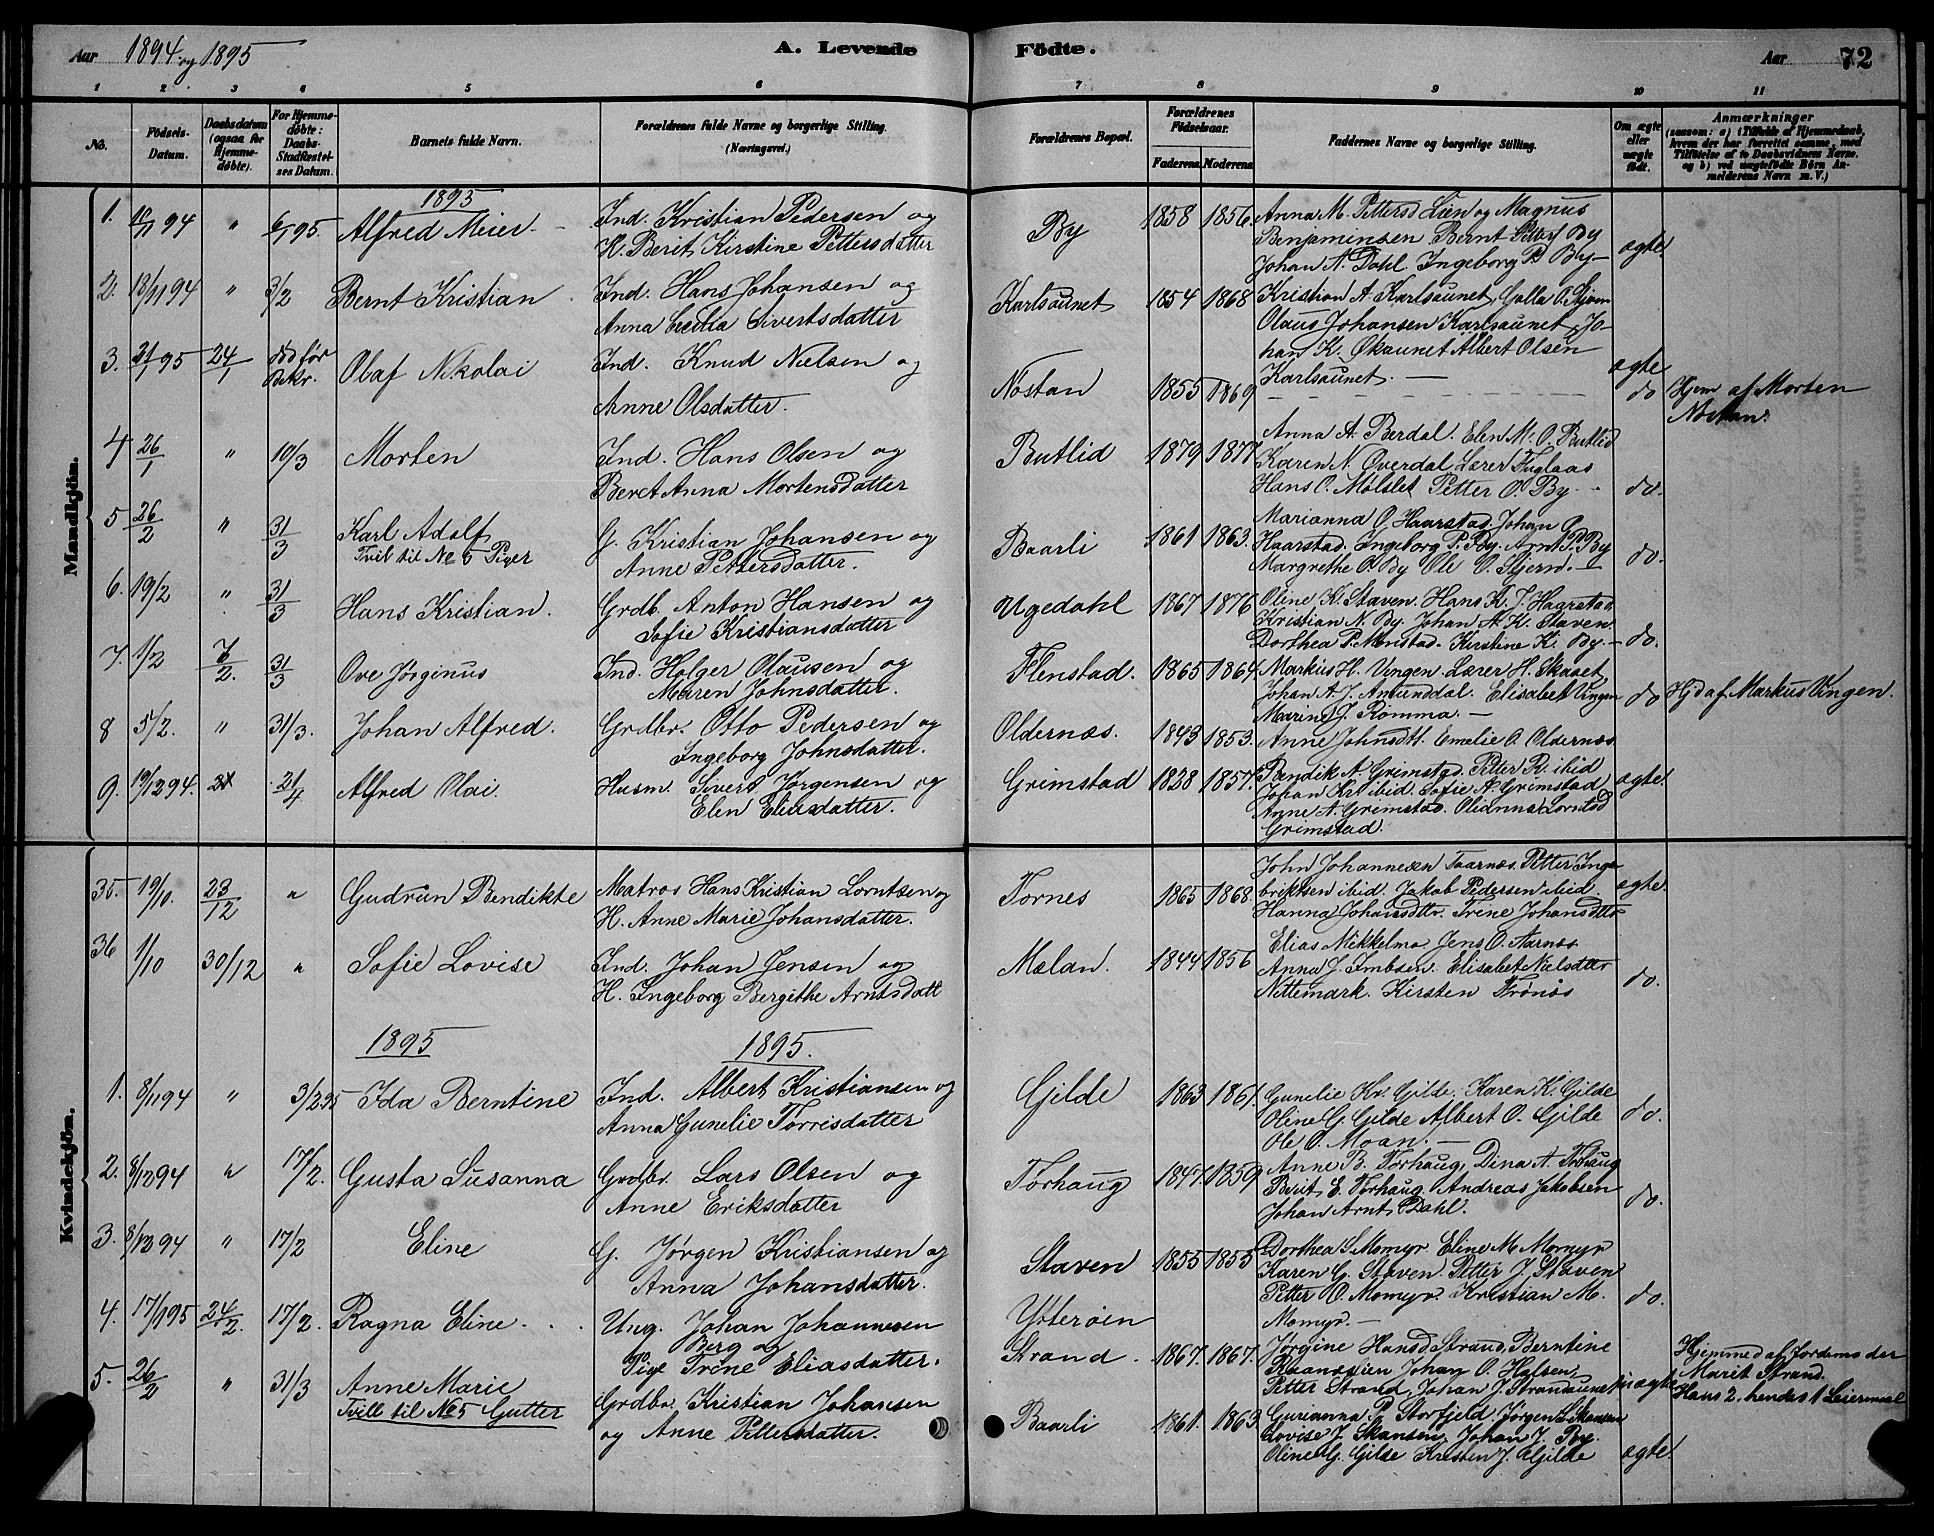 Aar 1894 og 1895
A. Levende Födte.
Aar 72
1 2 3 4 5 6 7 8 9 10 11
No.
Födsels-Datum.
Daabsdatum (ogsaa for Hjemme-döbte).
For Hjemme-döbte: Daabs-Stadfæstel-ses Datum.
Barnets fulde Navn.
Forældrenes fulde Navne og borgerlige Stilling. (Næringsvei.)
Forældrenes Bopæl.
Forældrenes Födselsaar.
Faderens. Moderens.
Faddernes Navne og borgerlige Stilling.
Om ægte eller uægte födt.
Anmærkninger
(saasom: a) i Tilfælde af Hjemmedaab, hvem der har forrettet samme, med Tilföielse af to Daabsvidners Navne, og b) ved uægtefödte Börn Anmelderens Navn m. V.)
Mandkjön.
1895
1. 18/11 94 " 6/1 95. Alfred Meier Ind. Kristian Pedersen og
K. Berit Kirstine Pettersdatter
By 1858 1856. Anna M. Pettersd Lien og Magnus
Benjaminsen Bernt Petters By
Johan N. Dahl. Ingeborg P. By ægte
2. 18/11 94 " 3/2 Bernt Kristian Ind. Hans Johansen og
Anna Cecilia Sivertsdatter
Karlsaunet 1854 1868 Kristian A. Karlsaunet, Galla O. Stjern
Olaus Johansen Karlsaunet Jo-
han K. Økaunet Albert Olsen
Karlsaunet. ægte
3. 21/1 95 24/1 död før Bekr. Olaf Nikolai Ind. Knud Nielsen og
Anne Olsdatter.
Nostan 1855 1869 do Hjem af Morten
Nostan.
4 26/1 " 10/3 Morten Ind. Hans Olsen og
Beret Anna Mortensdatter
Butlid 1879 1877 Anna A. Berdal. Elen M. O. Butlid
Karen N. Överdal Lærer Fuglaas
Hans O. Mølslet Petter O. By do.
5 26/2 " 31/3 Karl Adolf
Tvil til No 5 Piger
G. Kristian Johansen og
Anne Pettersdatter.
Baarli 1861 1863. Marianna O. Haarstad. Johan O.
Haarstad. Ingeborg P. By. Arnt P. By
Margrethe O. By Ole O. Stjern. do.
6. 19/2 " 31/3 Hans Kristian. Grdb. Anton Hansen og
Sofie Kristiansdatter
Ugedahl 1867 1876 Oline K. Staven. Hans K. J. Haarstad
Kristian N. By. Johan A. K. Staven
Dorthea P. Monstad. Kirstine K. By. do.
7. 1/2 7/2. 31/3 Ove Jörginus Ind. Holger Olausen og
Maren Johnsdatter.
Flenstad. 1865 1864. Markus H. Vingen Lærer H. Skaset
Johan A. J. Amunddal. Elisabet Vingen
Marine J. Romma. do Hjd af Markus Vingen.
8 5/2. " 31/3. Johan Alfred. Grdbr. Otto Pedersen og
Ingeborg Johnsdatter.
Oldernæs. 1843 1853. Anne Johnsdtt. Emelie O. Oldernæs
9. 19/12 94. 21/4 Alfred Olai. Husm. Sivert Jørgensen og
Elen Eliasdatter.
Grimstad 1828 1857. Bendik A. Grimstad. Petter R. ibid
Johan Kr ibid. Sofie A. Grimstad
Anne A. Grimstad. Olianna Lorntsd
Grimstad. ægte.
Kvindekjön.
35. 19/10. 23/12 " Gudrun Bendikte Matros Hans Kristian Lorntsen og
H. Anne Marie Johansdatter.
Tornes 1865 1868. John Johannesen Taarnes. Petter Inge
briktsen ibid. Jakob Pedersen ibid.
Hanna Johansdtr. Trine Johansdtr ægte.
36 1/10 30/12 " Sofie Lovise Ind. Johan Jensen og
H. Ingeborg Bergithe Arntsdatt
Mælan. 1844 1856 Elias Mikkelmo Jens O. Aarnæs
Anna J. Imbsen. Elisabet Nielsdttr
Nettemark. Kirsten Trönös do.
1895 1895.
1. 8/11 94 " 3/2 95 Ida Berntine Ind. Albert Kristiansen og
Anna Gunelie Torrisdatter
Gjelde 1863 1861. Gunelie Kr. Gilde. Karen K. Gilde
Oline G. Gilde Albert O. Gilde
Ole O. Moan. do.
2. 8/12 94 " 17/2. Gusta Susanna Grdbr. Lars Olsen og
Anne Eriksdatter
Torhaug 1847. 1859 Anne B. Torhaug, Dina A. Torhaug
Berit E. Torhaug. Andreas Jakobsen
Johan Arnt Dahl. do.
3. 8/12 94 " 17/2 Eline G. Jørgen Kristiansen og
Anna Johansdatter.
Staven 1855 1855 Dorthea S. Momyr Eline M. Momyr
Karen G. Staven. Petter J. Staven
Petter O. Momyr. Kristian M.
Momyr. do.
4. 17/1 95 24/2. 17/2. Ragna Eline Ung. Johan Johannesen
Berg og
Pige Trine Eliasdatter.
Ytterøien
Strand. 1867. 1867. Jørgine Hansd Strand, Berntine
Johan O. Halsen,
Petter Strand, Johan J. Strandaunet uægte
Hjemmed af Jordemoder
Marit Strand.
Hans 2, hendes 1 Leiermaal
5. 26/2 " 31/3 Anne Marie
Tvill til No 5 Gutter
Grdbr. Kristian Johansen
og Anne Pettersdatter.
Baarli 1861. 1863 Gurianna P. Storfjeld. Jørgen L. Skansen
Lovise J. Skansen, Johan J. By.
Oline G. Gilde Kristen J. Gilde ægte.